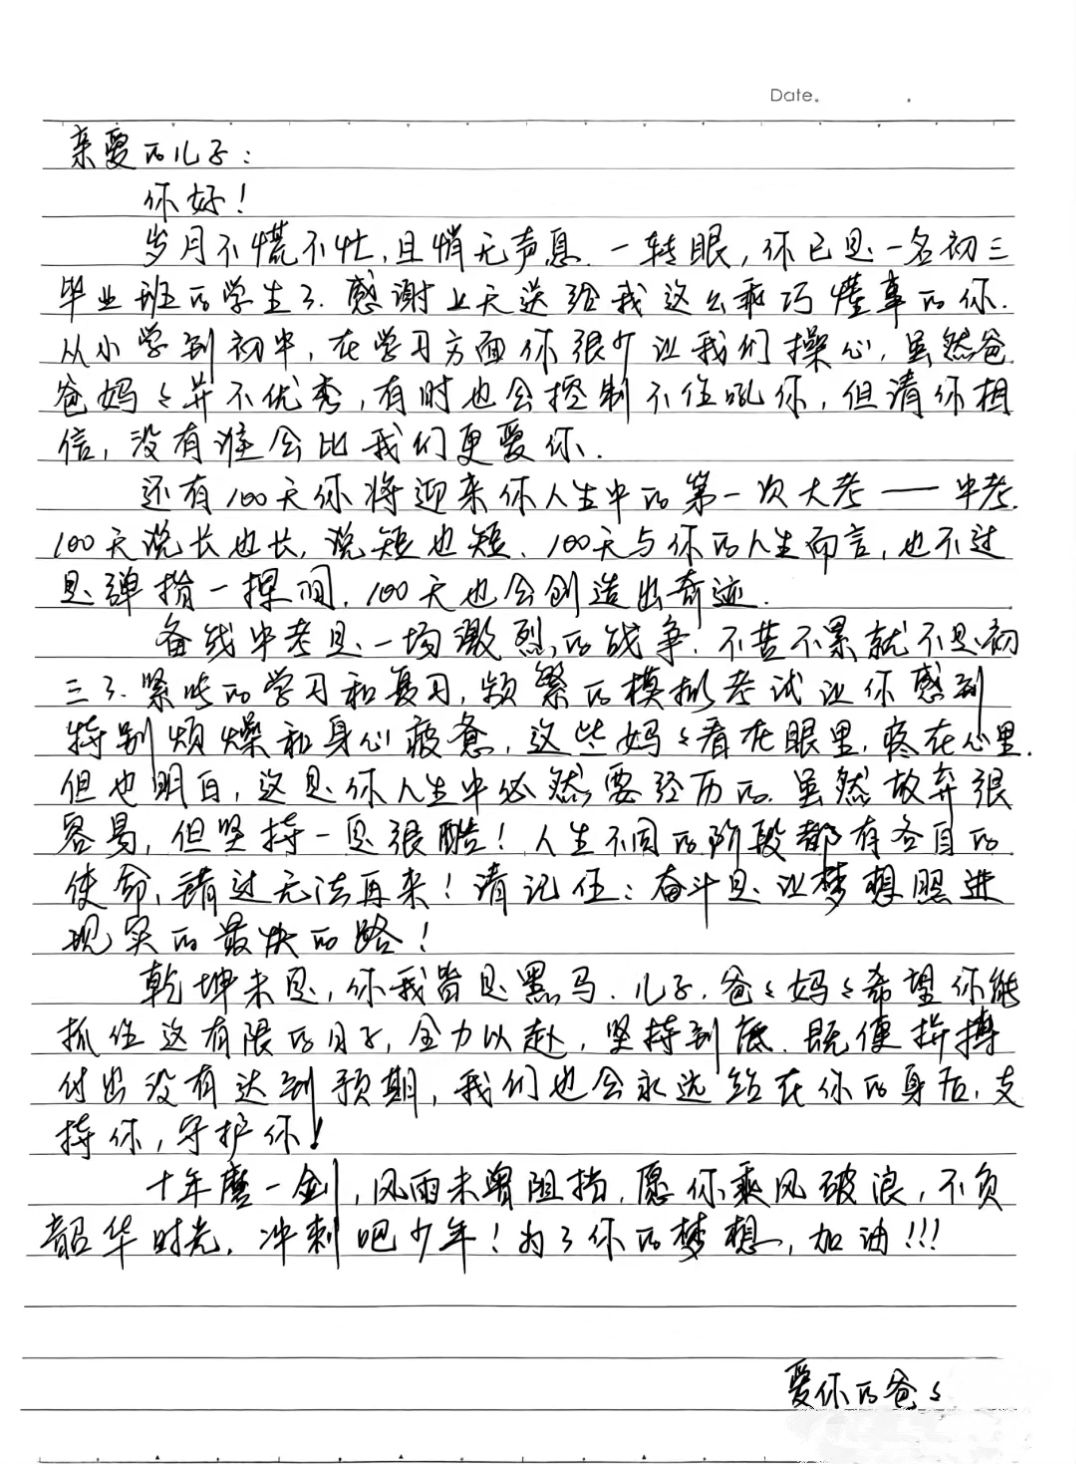 Date.
亲爱的儿子:
你好!
岁月不慌不忙,且悄无声息.一转眼,你已是一名初三
毕业班的学生了.感谢上天送给我这么乖巧懂事的你.
从小学到初中,在学习方面你很少让我们操心,虽然爸
爸妈々并不优秀,有时也会控制不住吼你,但请你相
信,没有谁会比我们更爱你.
还有100天你将迎来你人生中的第一次大考——中考.
100天说长也长,说短也短.100天与你的人生而言,也不过
是弹指一挥间.100天也会创造出奇迹.
备战中考是一场激烈的战争.不苦不累就不是初
三了.紧张的学习和复习,频繁的模拟考试让你感到
特别烦燥和身心疲惫,这些妈々看在眼里,疼在心里.
但也明白,这是你人生中必然要经历的.虽然放弃很
容易,但坚持一定很酷!人生不同的阶段都有各自的
使命,错过无法再来!请记住:奋斗是让梦想照进
现实的最快的路!
乾坤未定,你我皆是黑马.儿子,爸々妈々希望你能
抓住这有限的日子,全力以赴,坚持到底.既便拼搏
付出没有达到预期,我们也会永远站在你的身后,支
持你,守护你!
十年磨一剑,风雨未曾阻挡,愿你乘风破浪,不负
韶华时光.冲刺吧少年!为了你的梦想,加油!!!
爱你的爸々